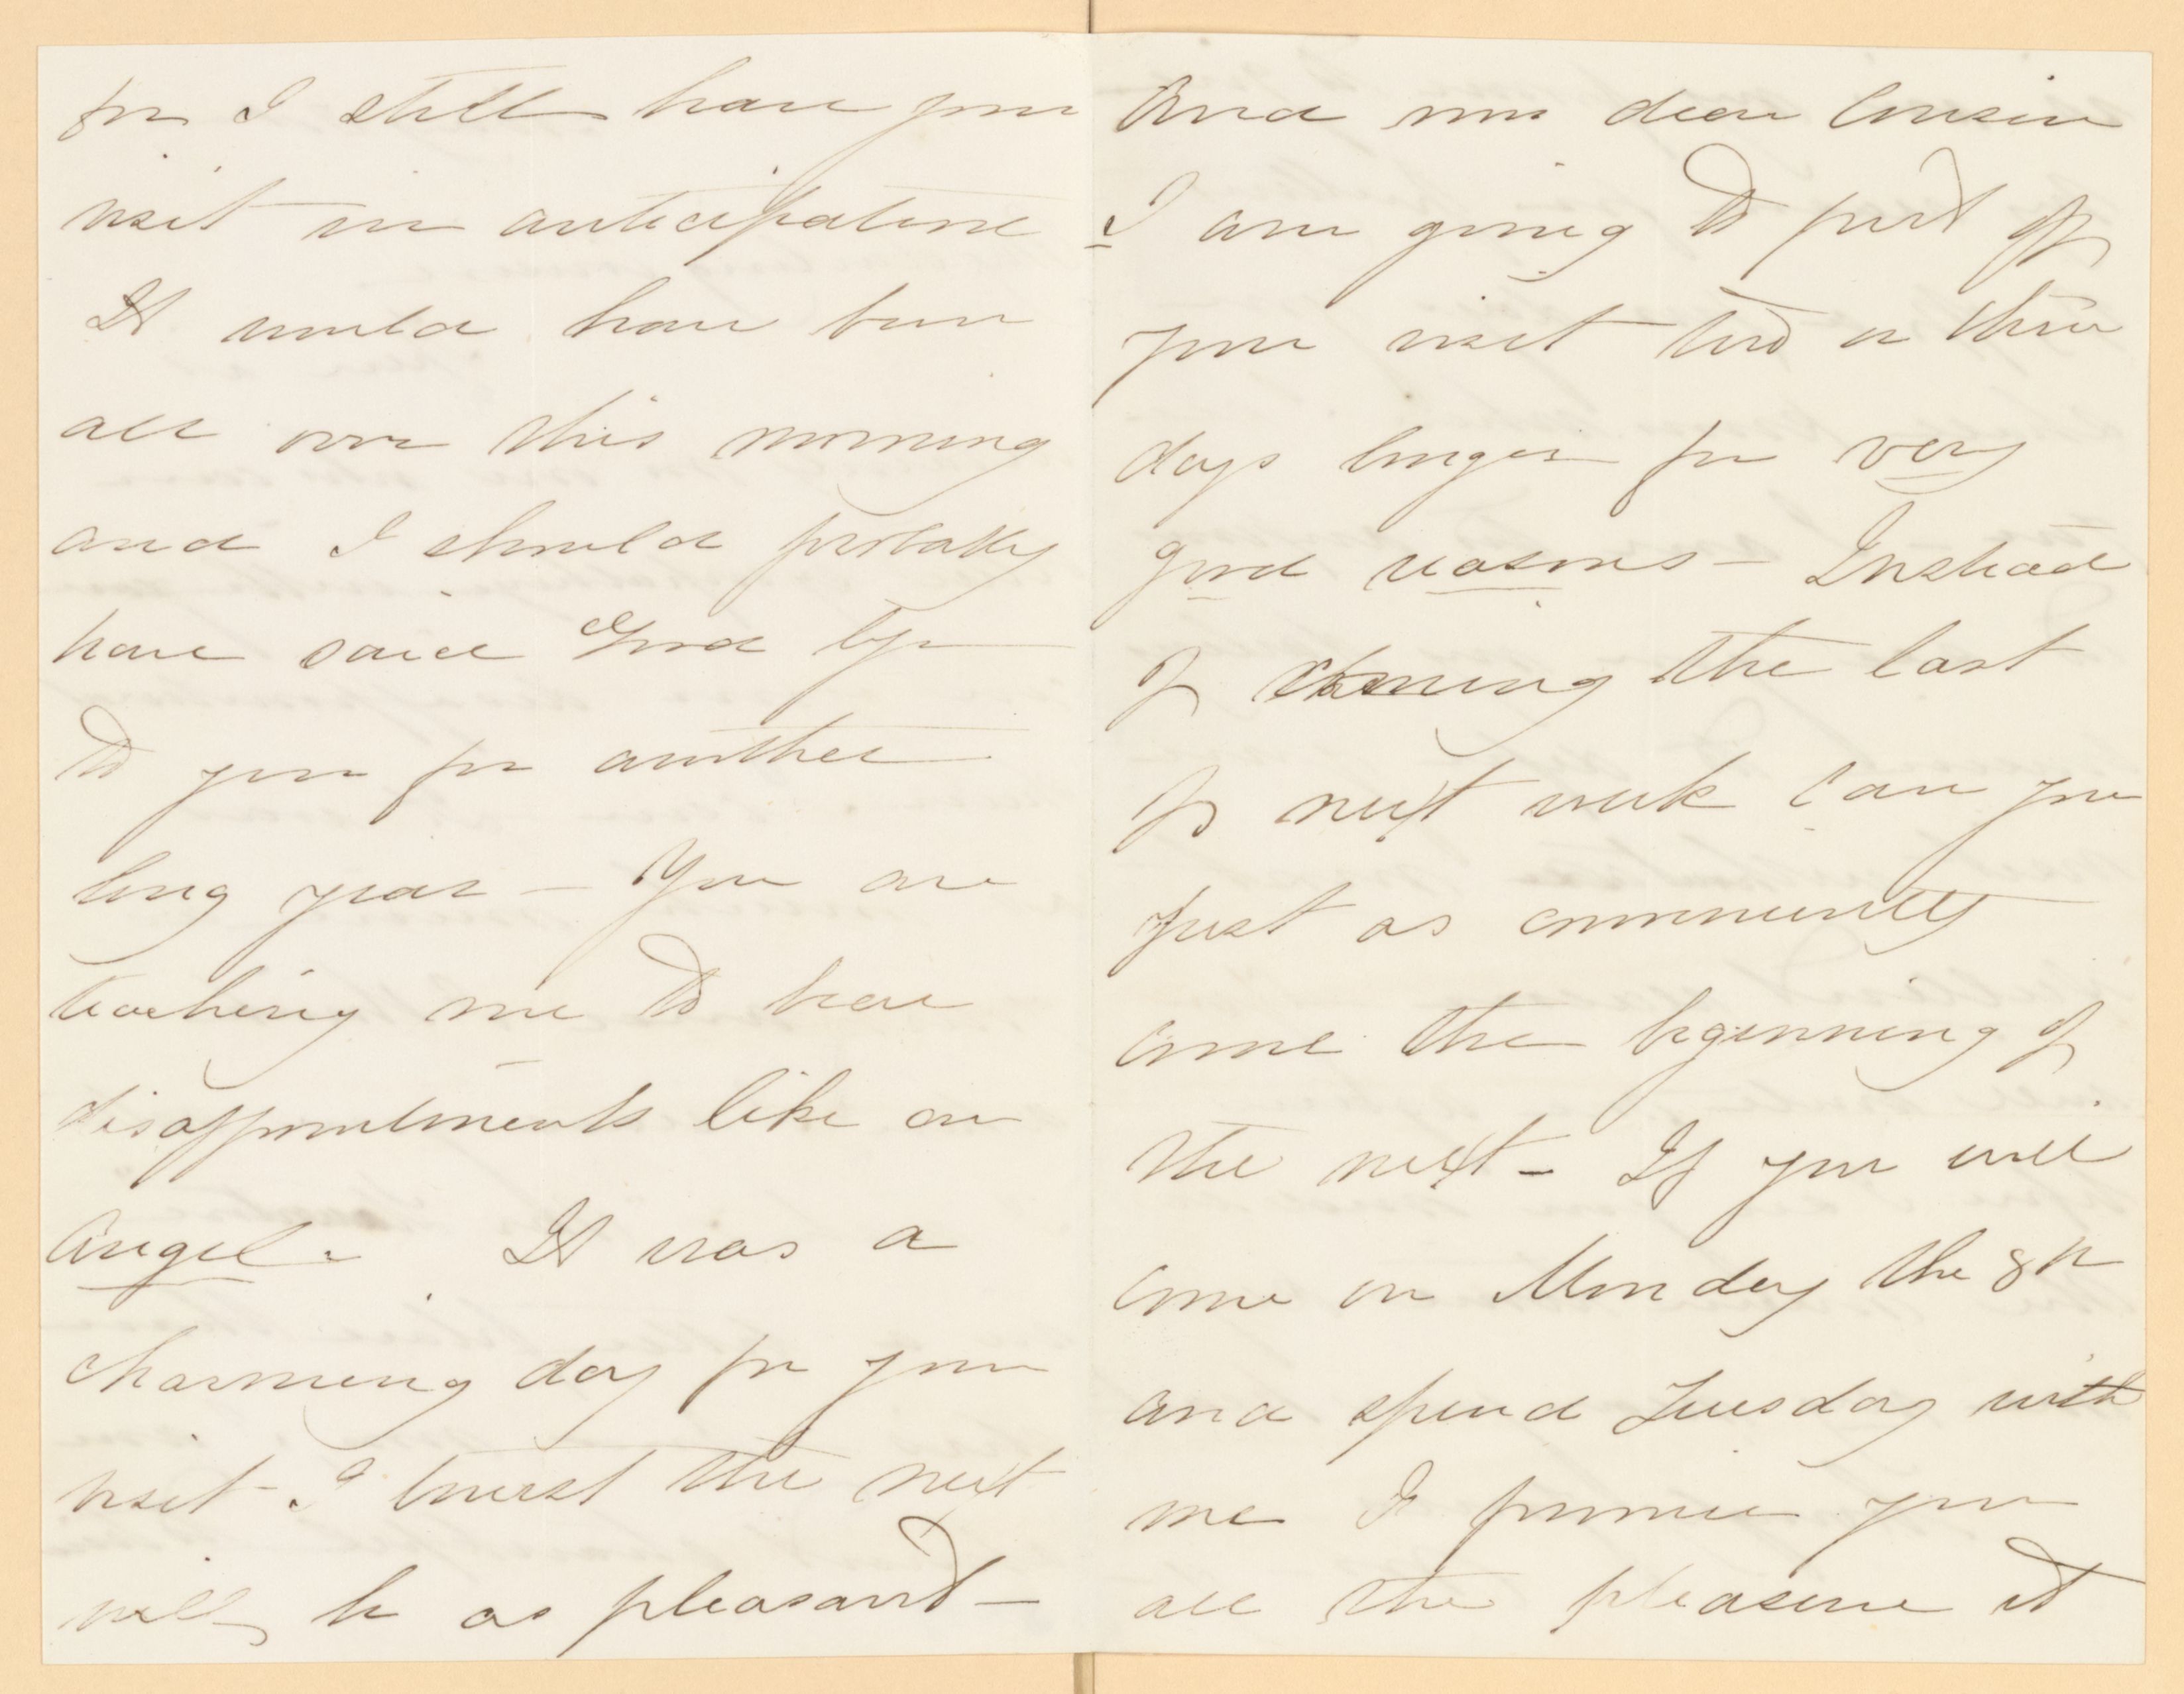 for I still have your
visit in anticipation
It would have been
all over this morning
and I should probably
have said Good bye
to you for another
long year – You are
teaching me to bear
disappointments like an
angel. It was a
charming day for your
visit – I trust the next
will be as pleasant –
And now dear Cousin
I am going to put off
your visit two or three
days longer for very
good reasons – Instead
of coming the last
of next week can you
just as conveniently
come the beginning of
the next – If you will
come on Monday the 8th
and spend Tuesday with
me I promise you
all the pleasure it